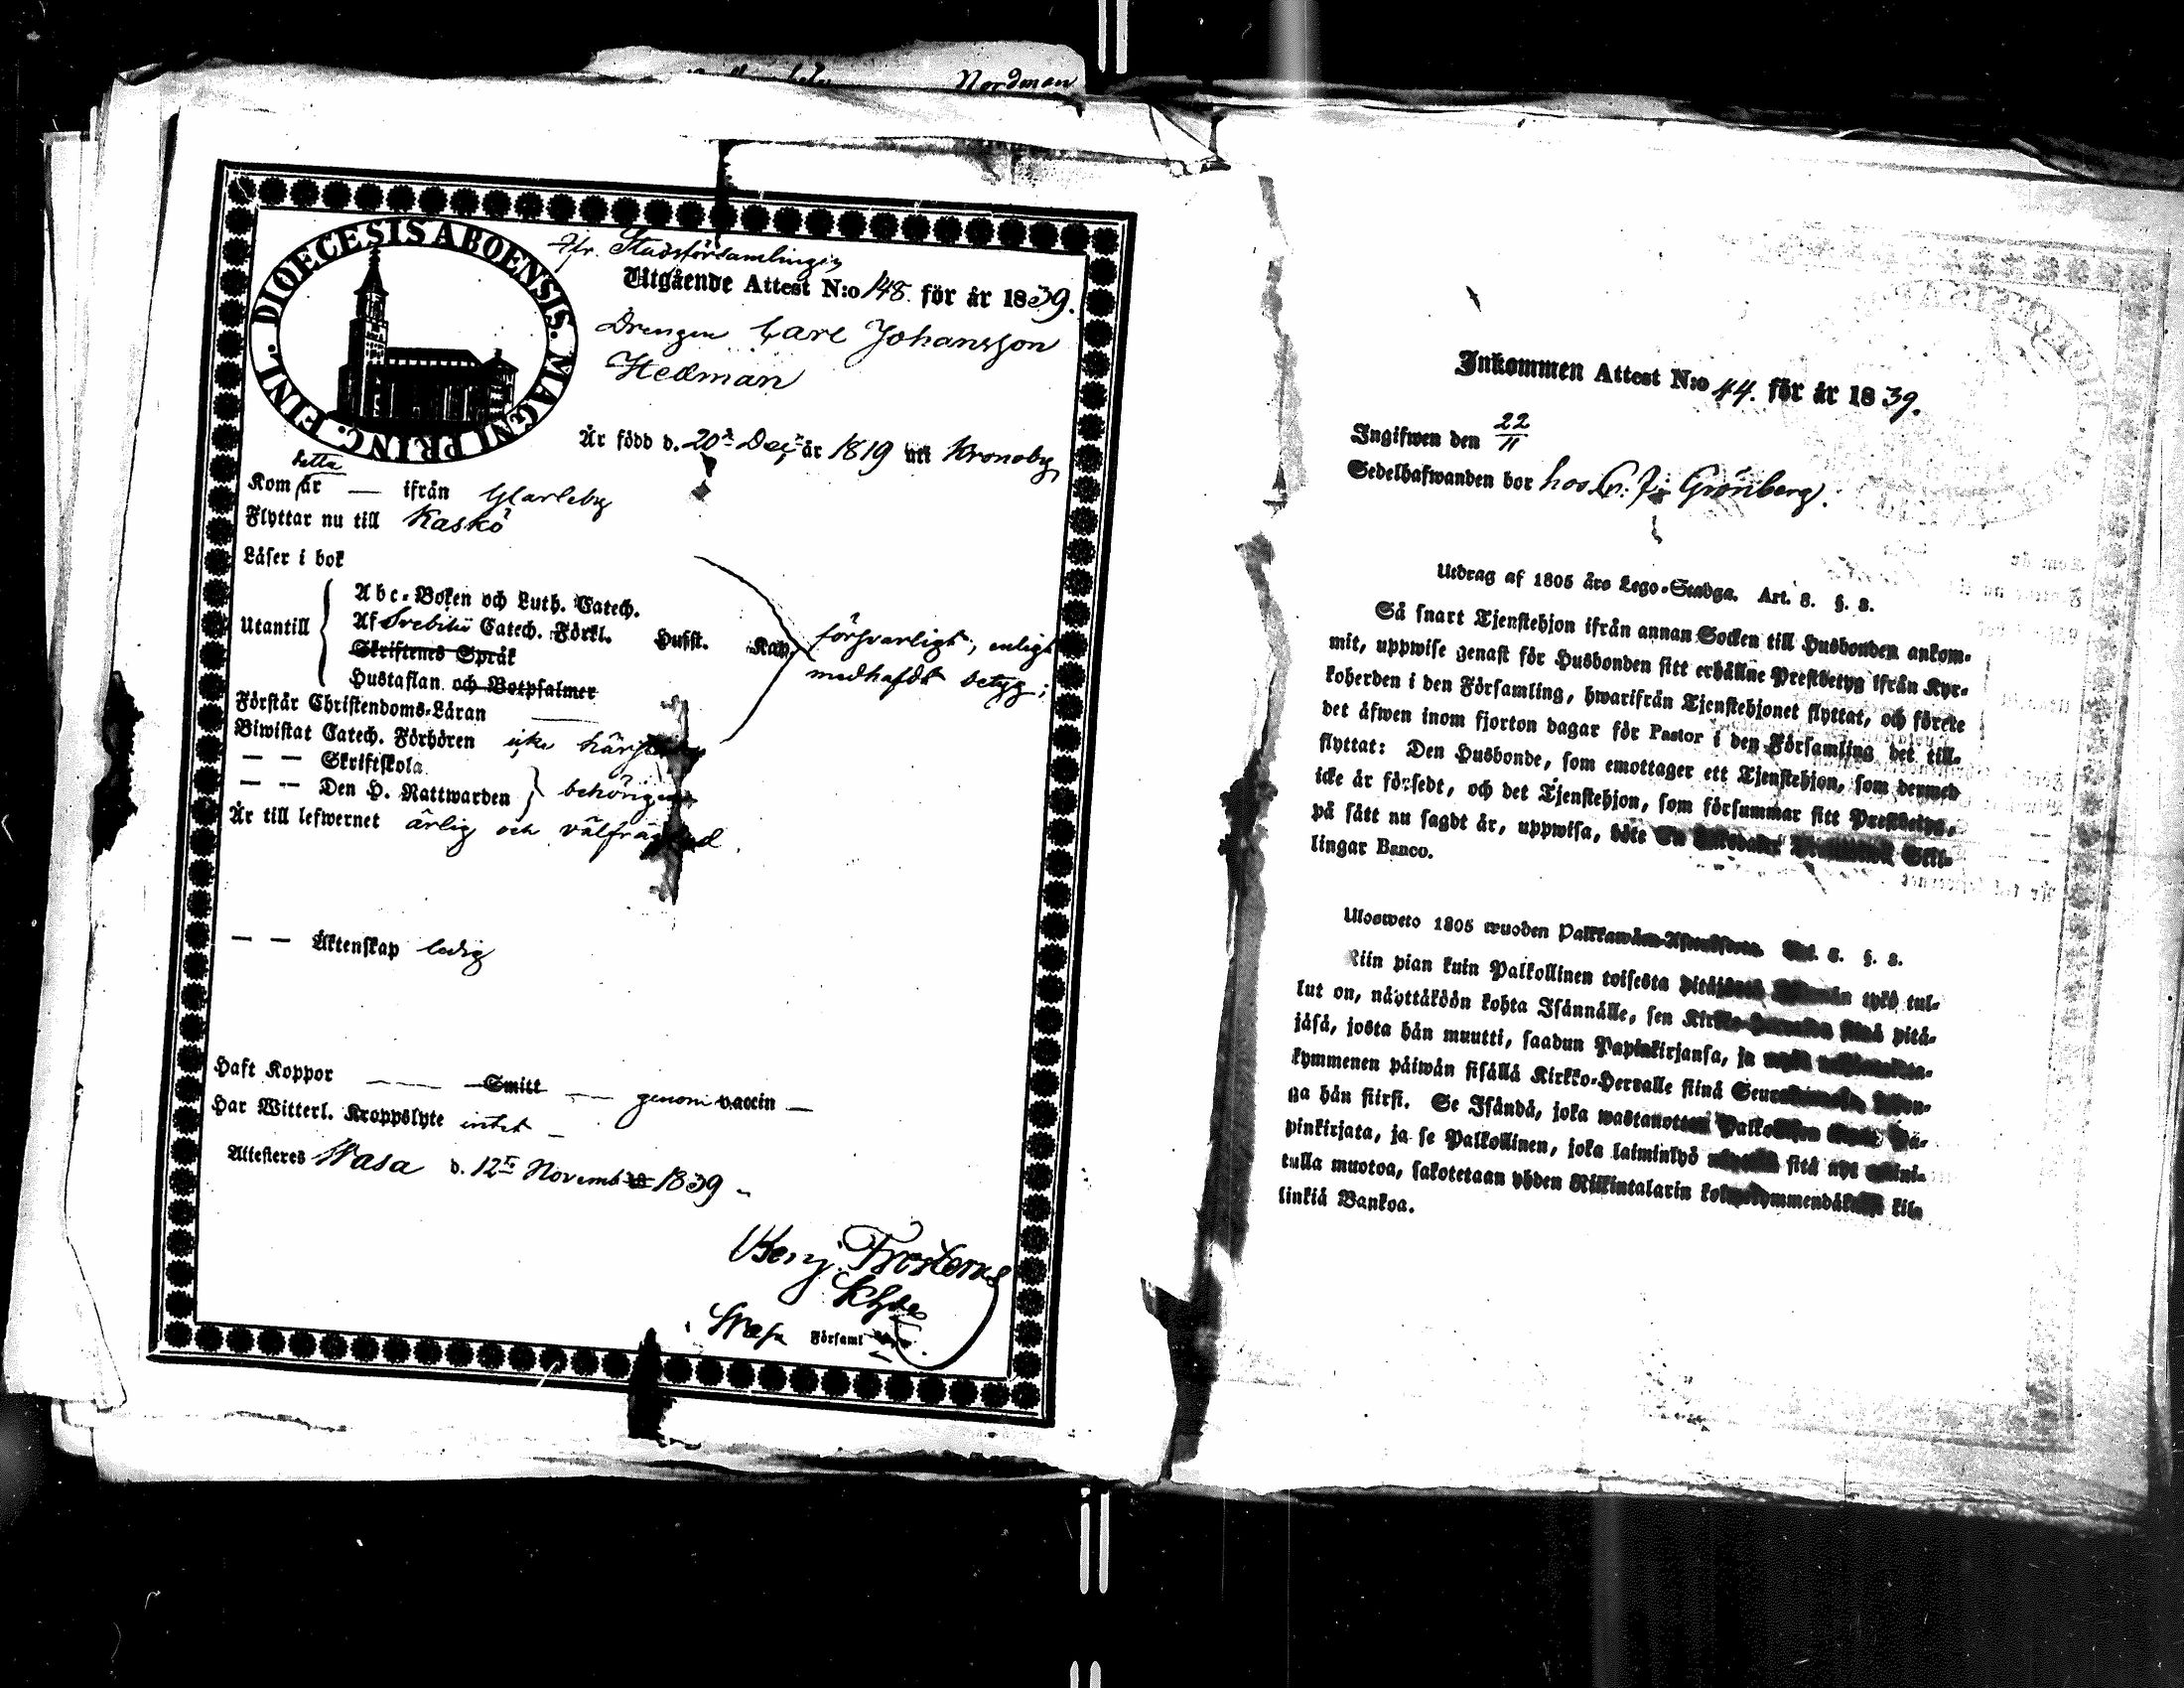 Nordman
DIOECESIS ABOENSIS. MAGNI PRINC. FINL.
Fr. Stadsförsamlingen
Utgående Attest N:o 148. för år 1839.
Drengen Carl Johansson
Hedman
Är född d. 20 Dec. år 1819 uti Kronoby
detta
Kom år — ifrån Gl Carleby
Flyttar nu till Kaskö
Läser i bok
Utantill
Abc-Boken och Luth. Catech.
Af Svebilii Catech. Förkl. Hufst. Kap.
Skriftenes Språk
Hustaflan och Botpsalmer
försvarligt, enligt
medhafdt betyg;
Förstår Christendoms-Läran —
Biwistat Catech. Förhören icke härst
— — Skriftskola
— — Den H. Nattwarden behörigen
Är till lefwernet ärlig och välfrägdad.
— — Äktenskap ledig
Haft Koppor — — Smitt — genom vaccin —
Har Witterl. Kroppslyte intet —
Attesteras Wasa d. 12 Novemb 1839
Benj. Frosterus
Wasa Församl
Inkommen Attest N:o 44. för år 1839.
Ingifwen den 22/11
Sedelhafwanden bor hos Grönberg.
Utdrag af 1805 års Lego-Stadga. Art. 3. §. 3.
Så snart Tjenstehjon ifrån annan Socken till Husbonden ankom-
mit, uppwise genast för Husbonden sitt erhållne Prestbetyg ifrån Kyr-
koherden i den Församling, hwarifrån Tjenstehjonet flyttat, och förete
det äfwen inom fjorton dagar för Pastor i den Församling det till-
flyttat: Den Husbonde, som emottager ett Tjenstehjon, som dermed
icke är försedt, och det Tjenstehjon, som försummar sitt Prestbetyg,
på sätt nu sagdt är, uppwisa, böte En Skil-
lingar Banco.
Ulosweto 1805 wuoden Palkkawäen-Asetuksesta. 3. §. 3.
Niin pian kuin Palkollinen toisesta pitäjästä tykö tul-
lut on, näyttäköön kohta Isännälle, sen Kirkko-Herralda siinä pitä-
jäsä, josta hän muutti, saadun Papinkirjansa, ja
kymmenen päiwän sisällä Kirkko-Herralle siinä Seurakunnasa,
ga hän siirsi. Se Isändä, joka wastanottaa Palkollisen Pa-
pinkirjata, ja se Palkollinen, joka laiminlyö sitä nyt maini-
tulla muotoa, sakotetaan yhden Riikintalarin kolmekymmendäkaksi kil-
linkiä Bankoa.